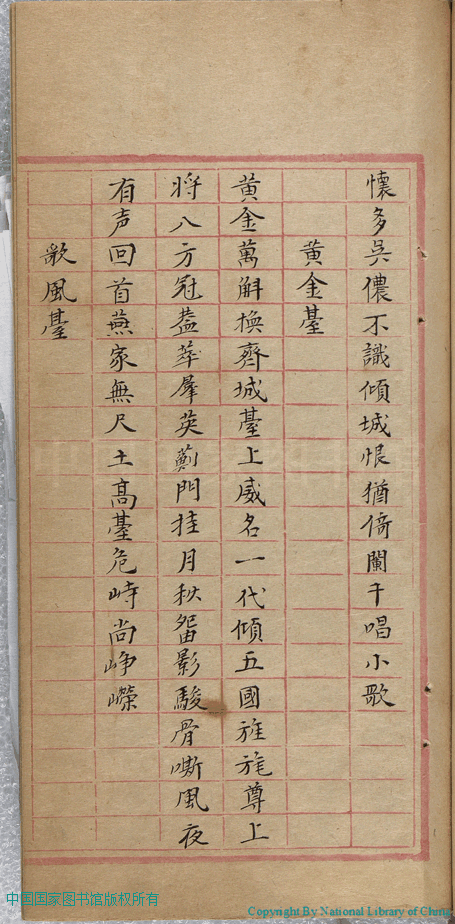 懷多吳儂不識傾城恨猶倚闌干唱小歌
黃金臺
黃金萬斛換齊城臺上威名一代傾五國旌旄尊上
將八方冠蓋萃羣英薊門挂月秋留影駿骨嘶風夜
有声回首燕家無尺土高臺危峙尚崢嶸
歌風臺
中国国家图书馆版权所有
Copyright By National Library of China